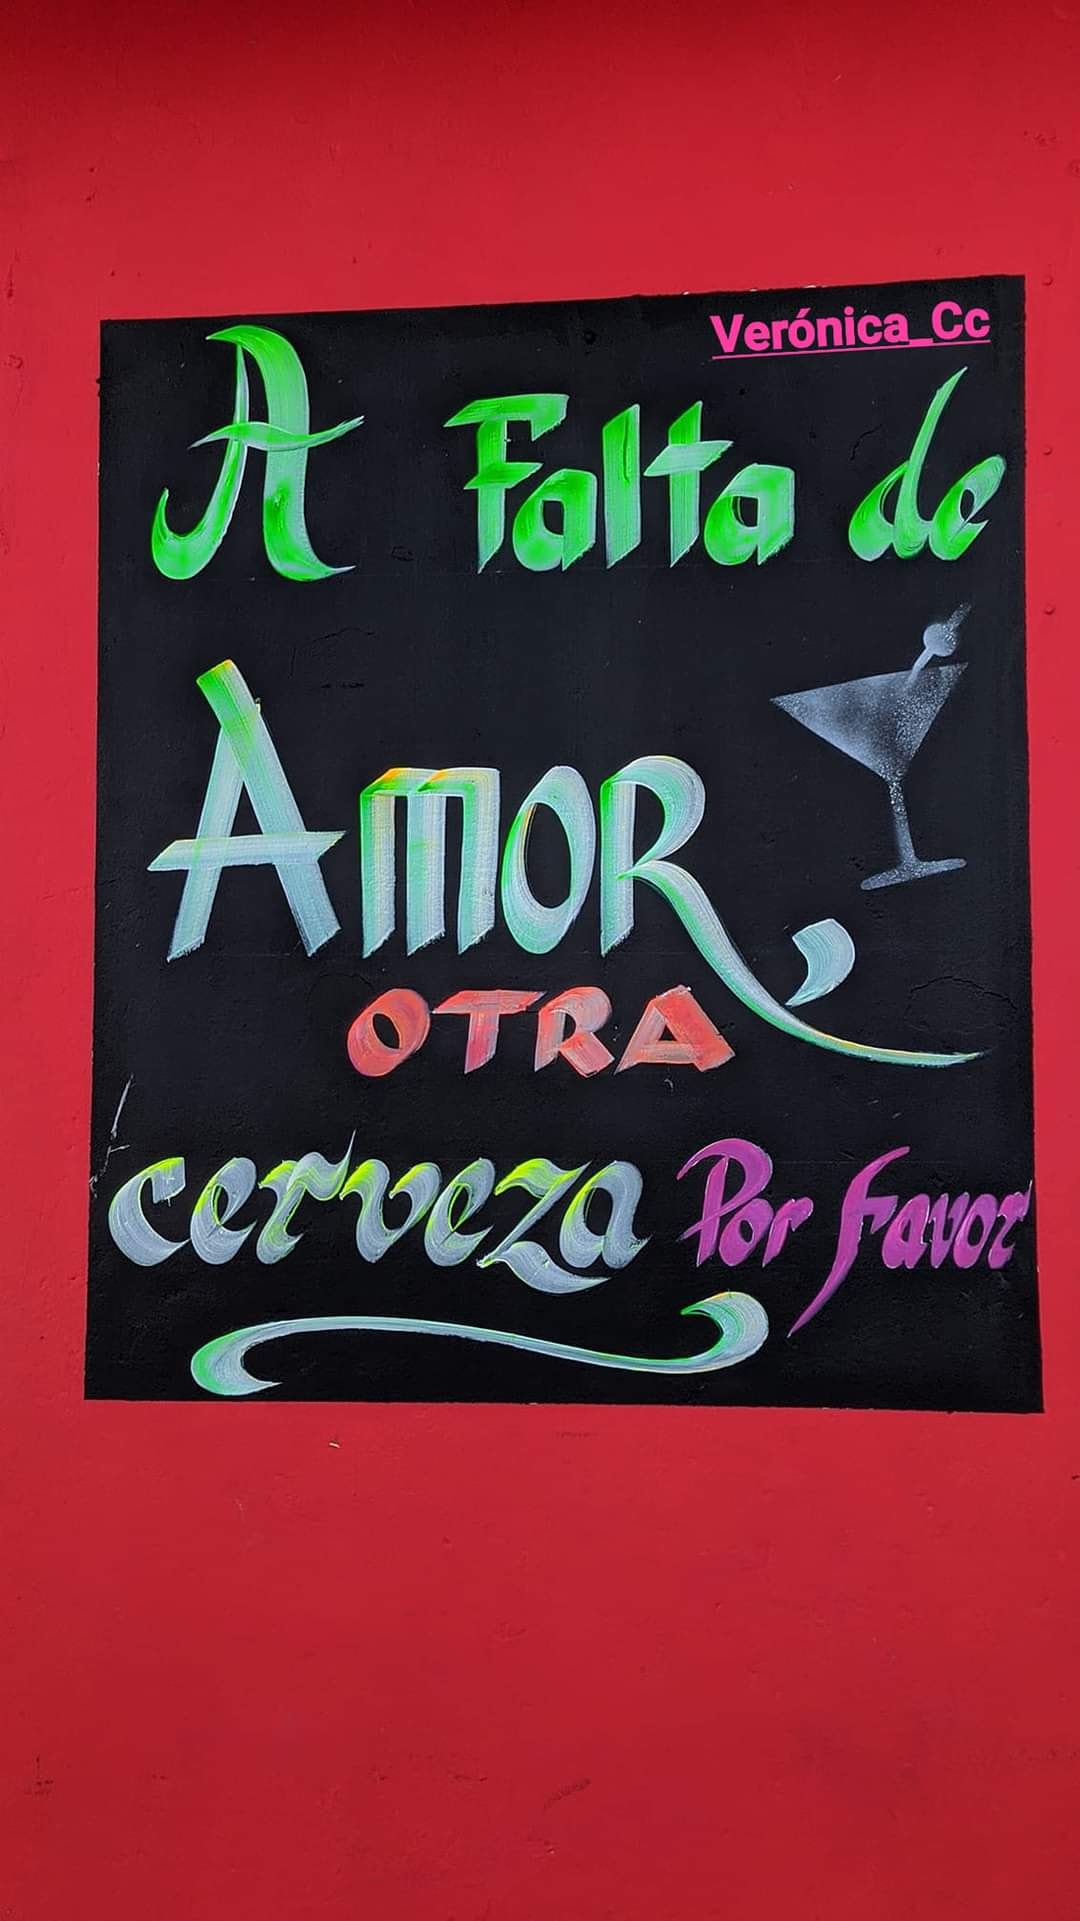 Verónica_Cc
A Falta de
Amor,
OTRA
cerveza Por Favor